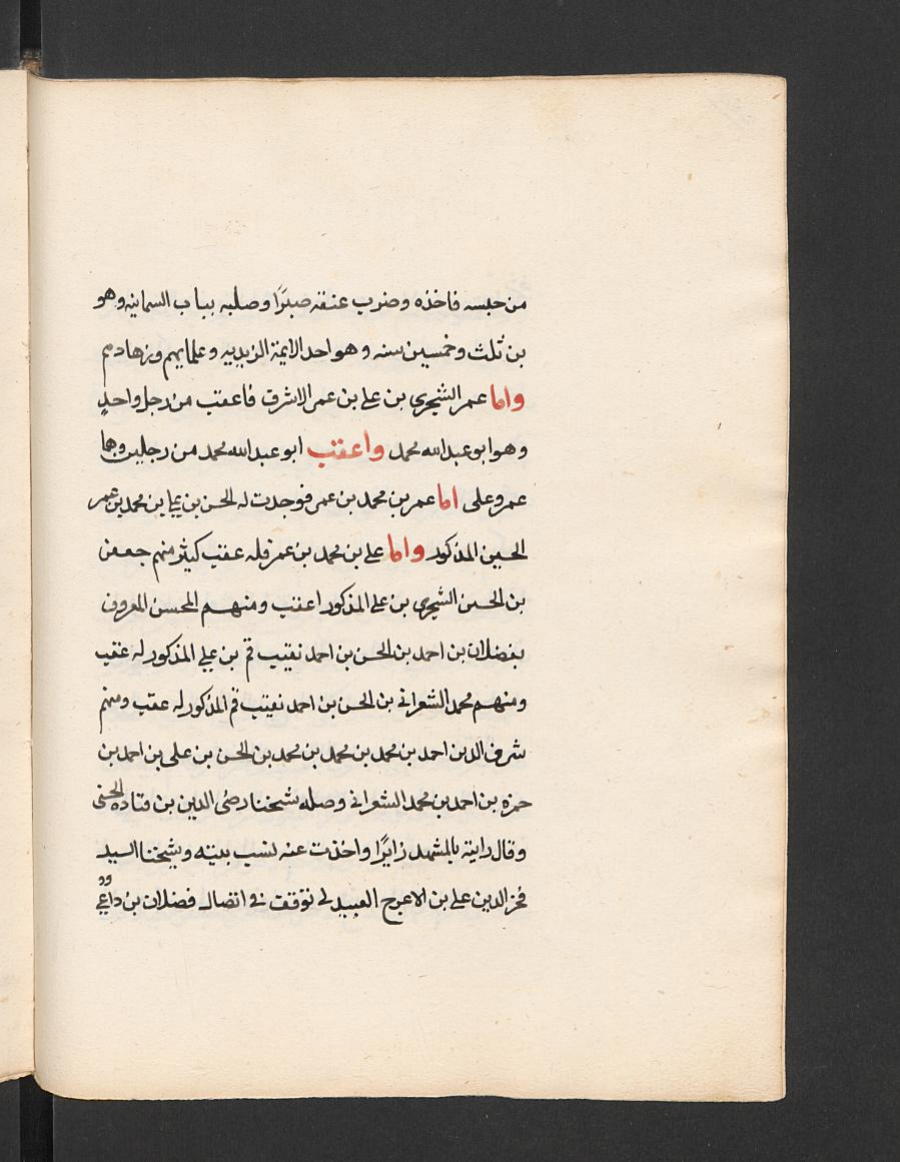 من حبسه فاخذه وضرب عنقه صبرًا وصلبه بباب السمانيه وهو
بن ثلث وخمسين سنه وهو احد الايمة الزيديه وعلمايهم وزهادهم
واما عمر الشجرى بن على بن عمر الاشرف فاعقب من رجل واحدٍ
وهو ابو عبدالله محمد واعقب ابو عبدالله محمد من رجلين وهما
عمر وعلى اما عمر بن محمد بن عمر فوجدت له الحسن بن على بن محمد بن عمر
الحسين المذكور واما على بن محمد بن عمر فله عقب كثير منهم جعفر
بن الحسن الشجرى بن على المذكور اعقب ومنهم المحسن المعروف
بفضلان بن احمد بن الحسن بن احمد نقيب قم بن على المذكور له عقب
ومنهم محمد الشعرانى بن الحسن بن احمد نقيب قم المذكور له عقب ومنهم
شرف الدين احمد بن محمد بن محمد بن محمد بن الحسن بن على بن احمد بن
حمزه بن احمد بن محمد الشعرانى وصله شيخنا رضى الدين بن قتاده الحسنى
وقال رايته بالمشهد زايرًا واخذت عنه نسب بيته وشيخنا السيد
فخر الدين على بن الاعرج العبيدلى توقف فى اتصال فضلان بن داعى